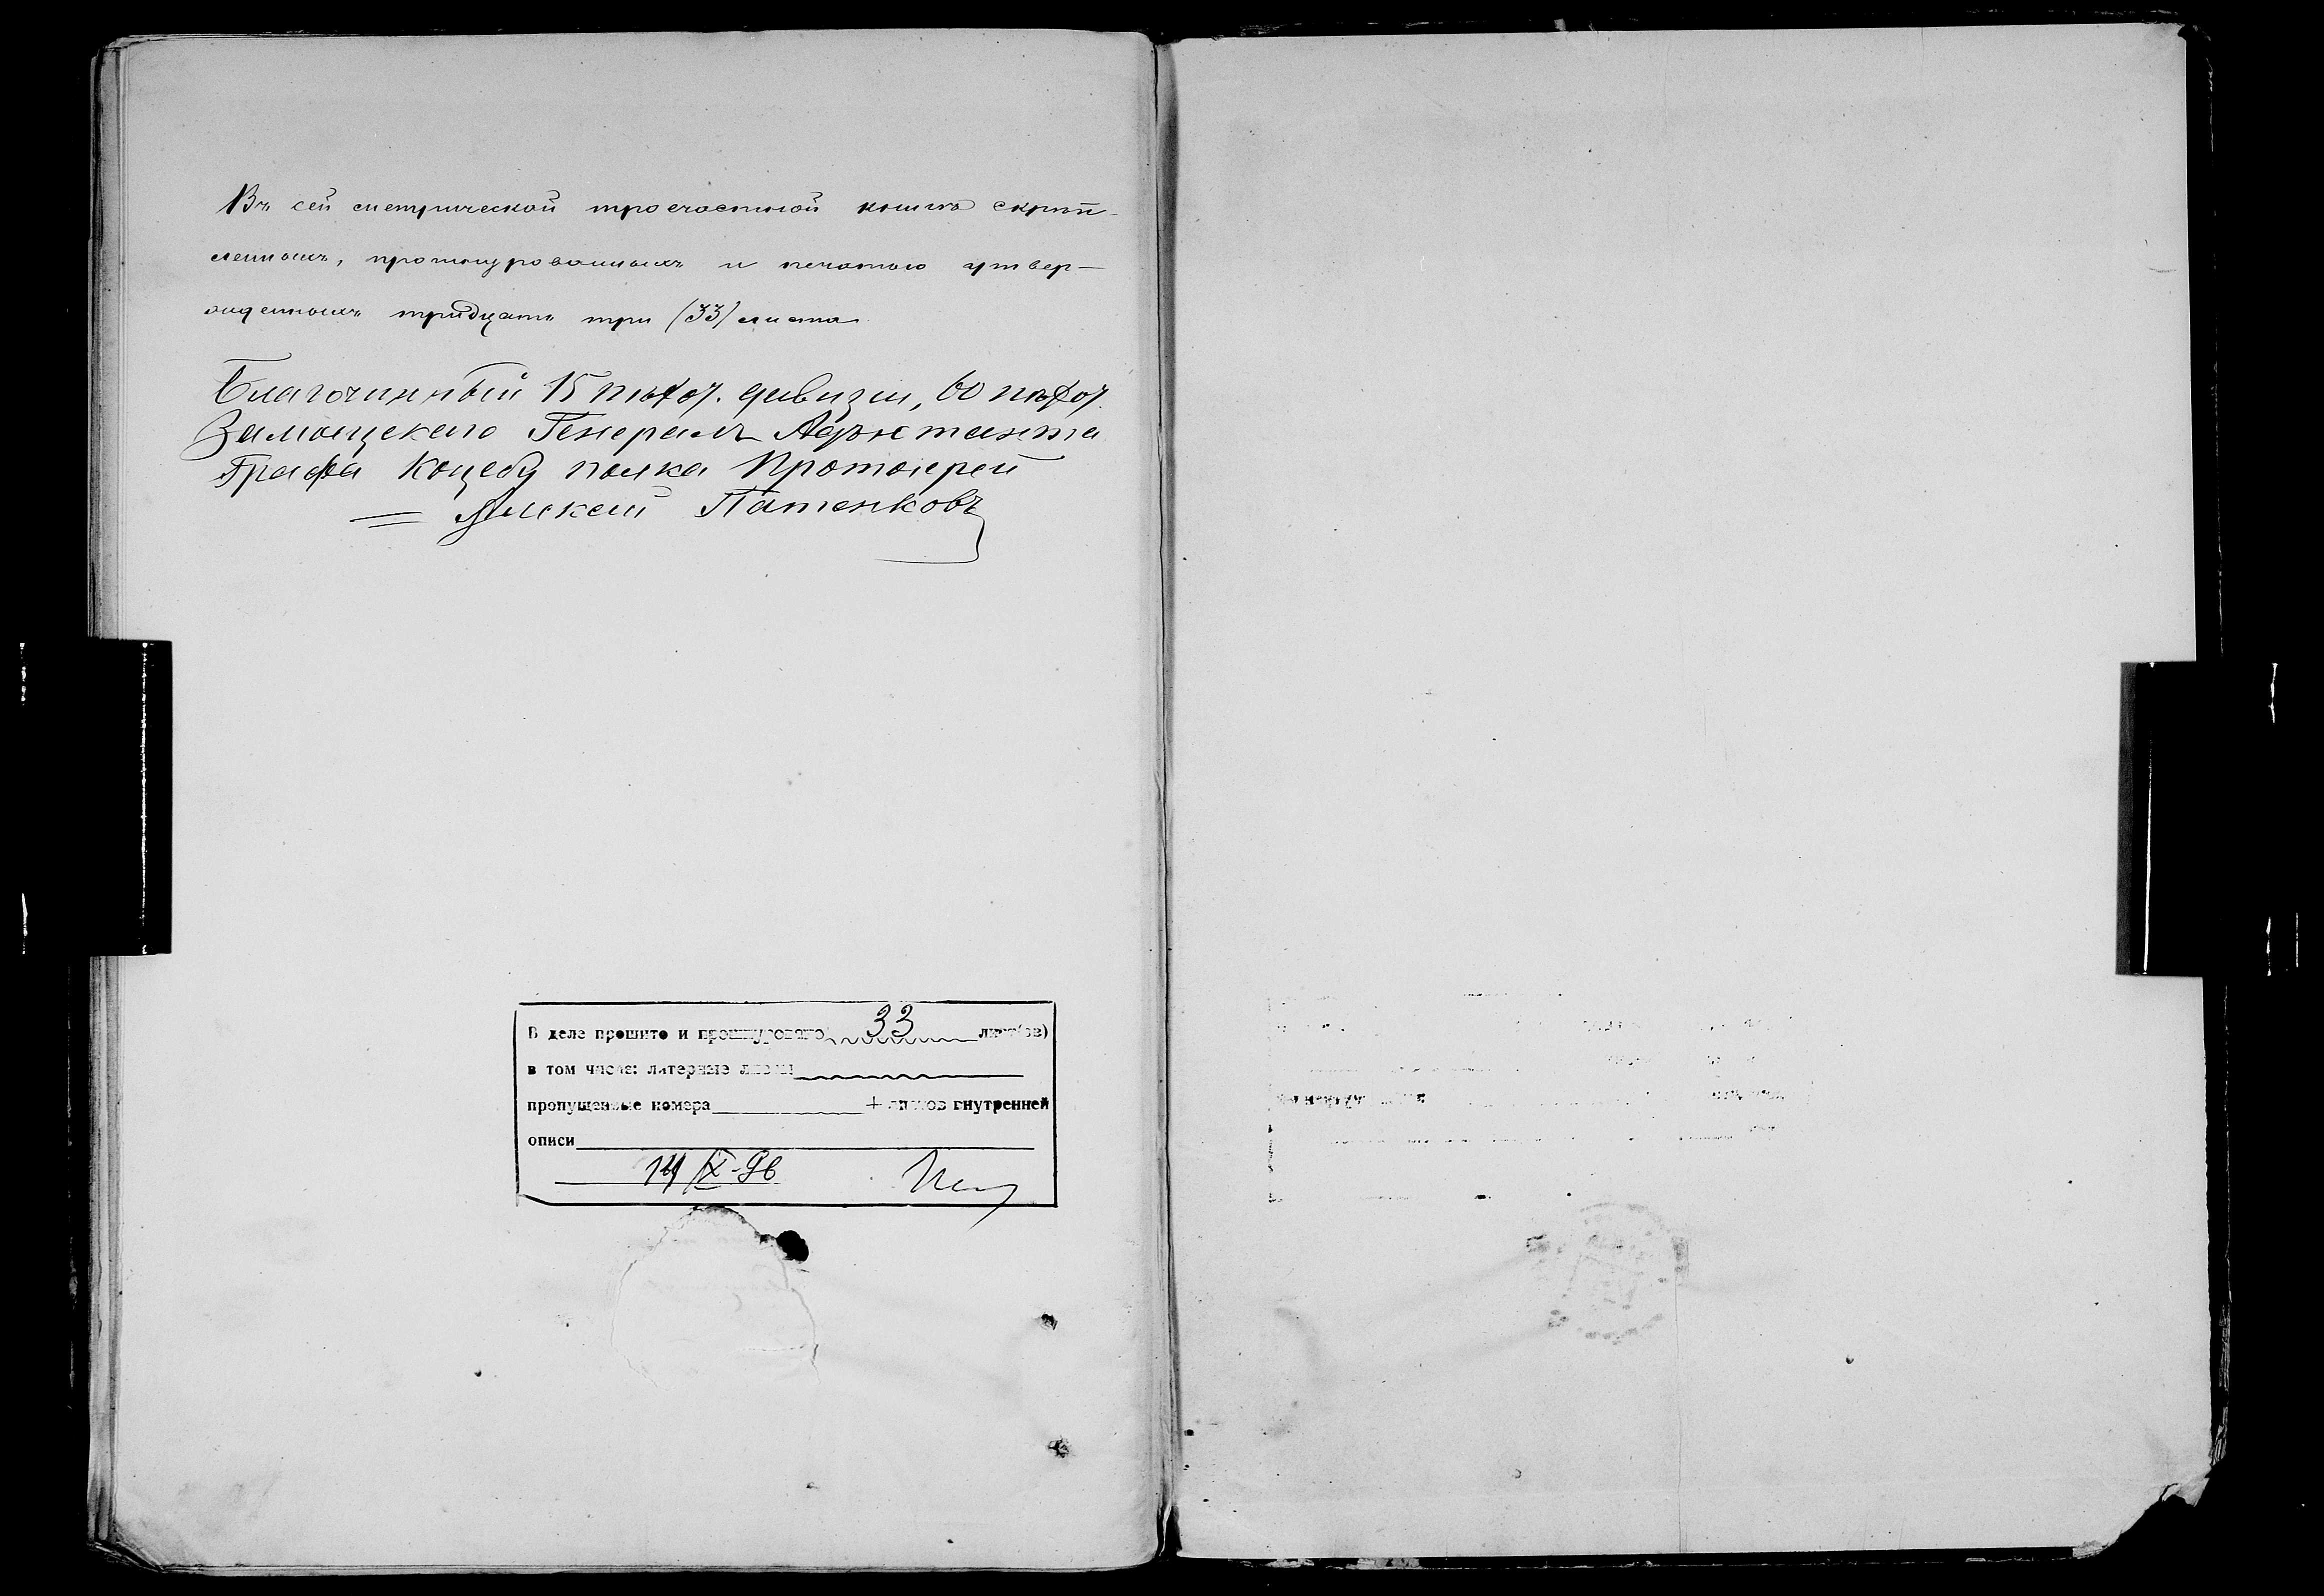 Въ сей метрической троечастной книгѣ скрѣп-
ленныхъ, прошнурованныхъ и печатью утвер-
жденныхъ тридцать три (33) листа
Благочинный 15 пѣхот. дивизіи, 60 пѣхот.
Замосцскаго Генералъ Адъютанта
Графа Коцебу полка Протоіерей
Алексій Патенковъ
В деле прошито и прошнуровано 33 лист(ов)
в том числе: литерные листы
пропущенные номера + листов внутренней
описи
14/IX-96